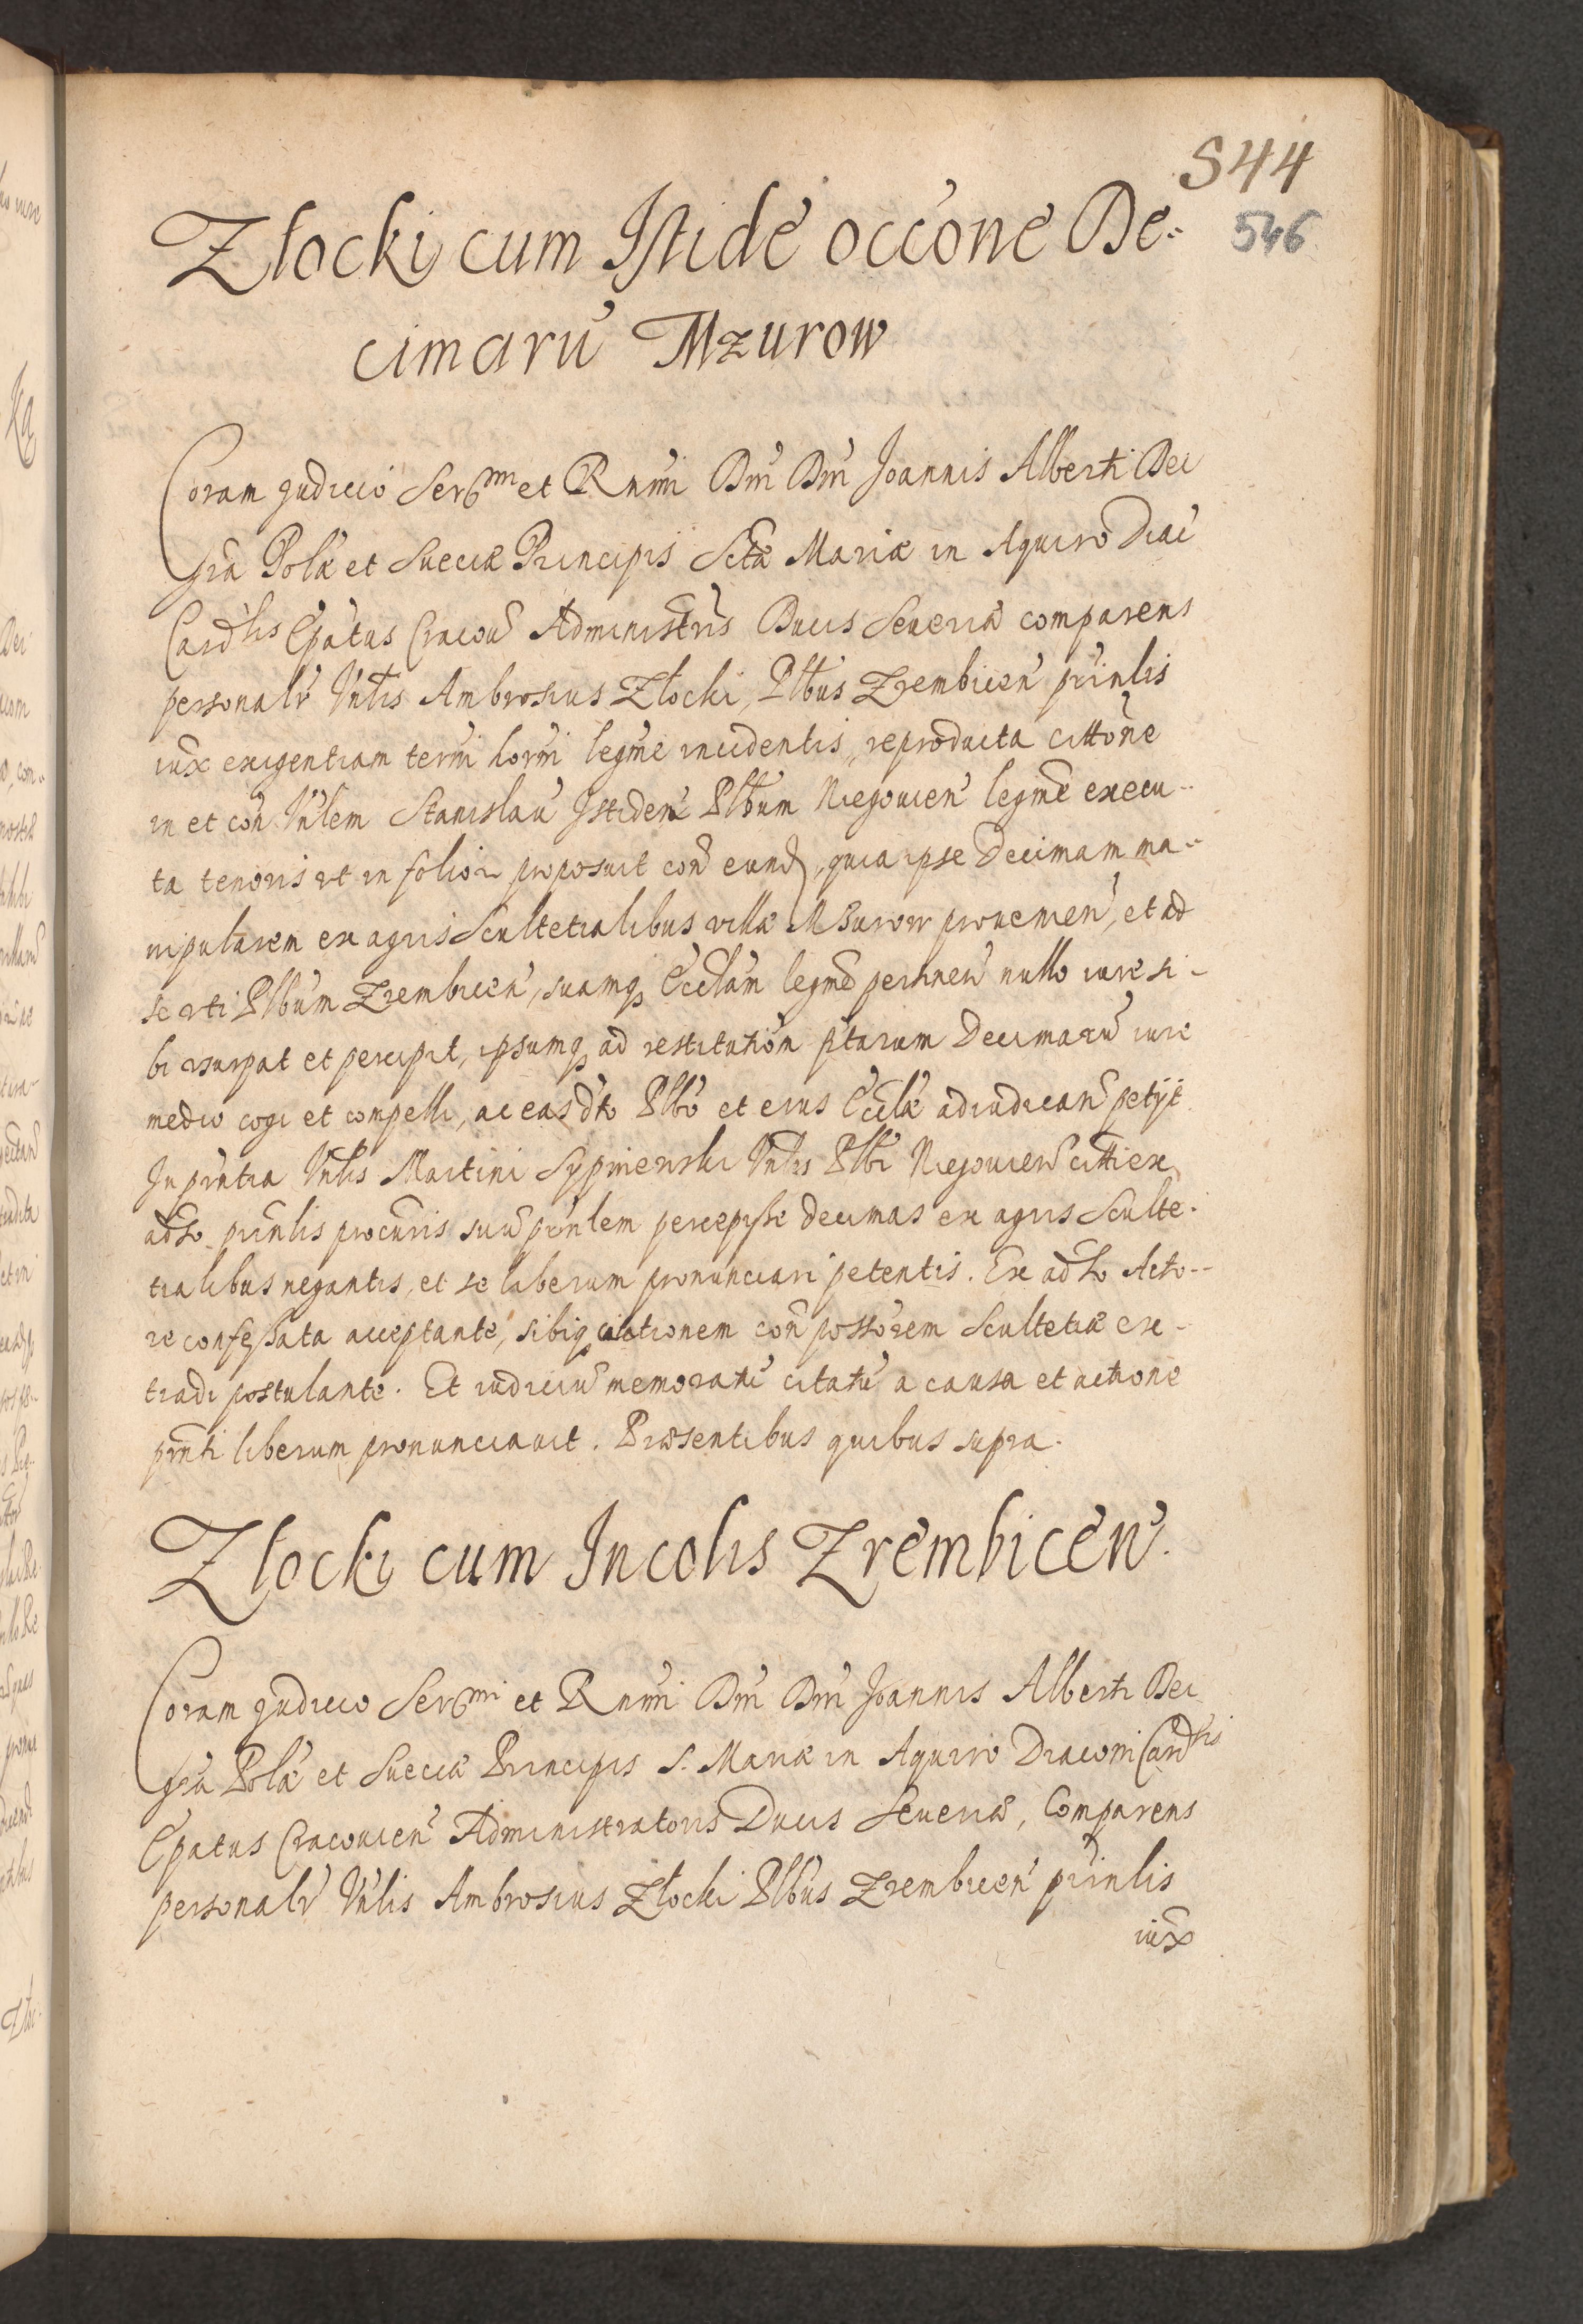 544
546
Złocki cum Istide occone De-
cimaru Mzurow
Coram Judicio Sermi et Rnmi Dni Dni Joannis Alberti Dei
gra Polæ et Sueciæ Principis Sctæ Mariæ in Aquiro Diac
Cardlis Epatus Cracou Administris Ducis Seueriæ comparens
personalr Vnlis Ambrosius Złocki, Plbus Zrembicen prinlis
iux exigentiam termi horni legme incidentis, reproducta cittone
in et con Vnlem Stanislau Istidem Plbum Niegouien legme execu-
ta tenoris ut in folio proposuit con eund, quia ipse Decimam ma-
nipularem ex agris Scultetialibus villæ Msurow prouenien, et ad
se uti Plbum Zrembicen, suamq Ecclam legme pertinen nullo iure si-
bi usurpat et percipit, ipsumq ad restitution ptarum Decimaru iuris
medio cogi et compelli, ac eas dto Plbo et eius Ecclæ adiudicari petijt
In pntia Vnlis Martini Sypnienski Vnlis Plbi Niegouien citti ex
adso prinlis procuris suu prinlem percepisse decimas ex agris Sculte-
tialibus negantis, et se liberum pronunciari petentis. Ex adso Acto-
re confessata acceptante, sibiq actionem con possorem Scultetiæ ex-
tradi postulante. Et iudiciu memoratu citatu a causa et actione
pnti liberum pronunciauit. Præsentibus quibus supra.
Złocki cum Incolis Zrembicen.
Coram Judicio Sermi et Rnmi Dni Dni Joannis Alberti Dei
gra Polæ et Sueciæ Principis S. Mariæ in Aquiro Diaconi Cardlis
Epatus Cracouien Administratoris Ducis Seueriæ, Comparens
personalr Vnlis Ambrosius Złocki Plbus Zrembicen prinlis
iux